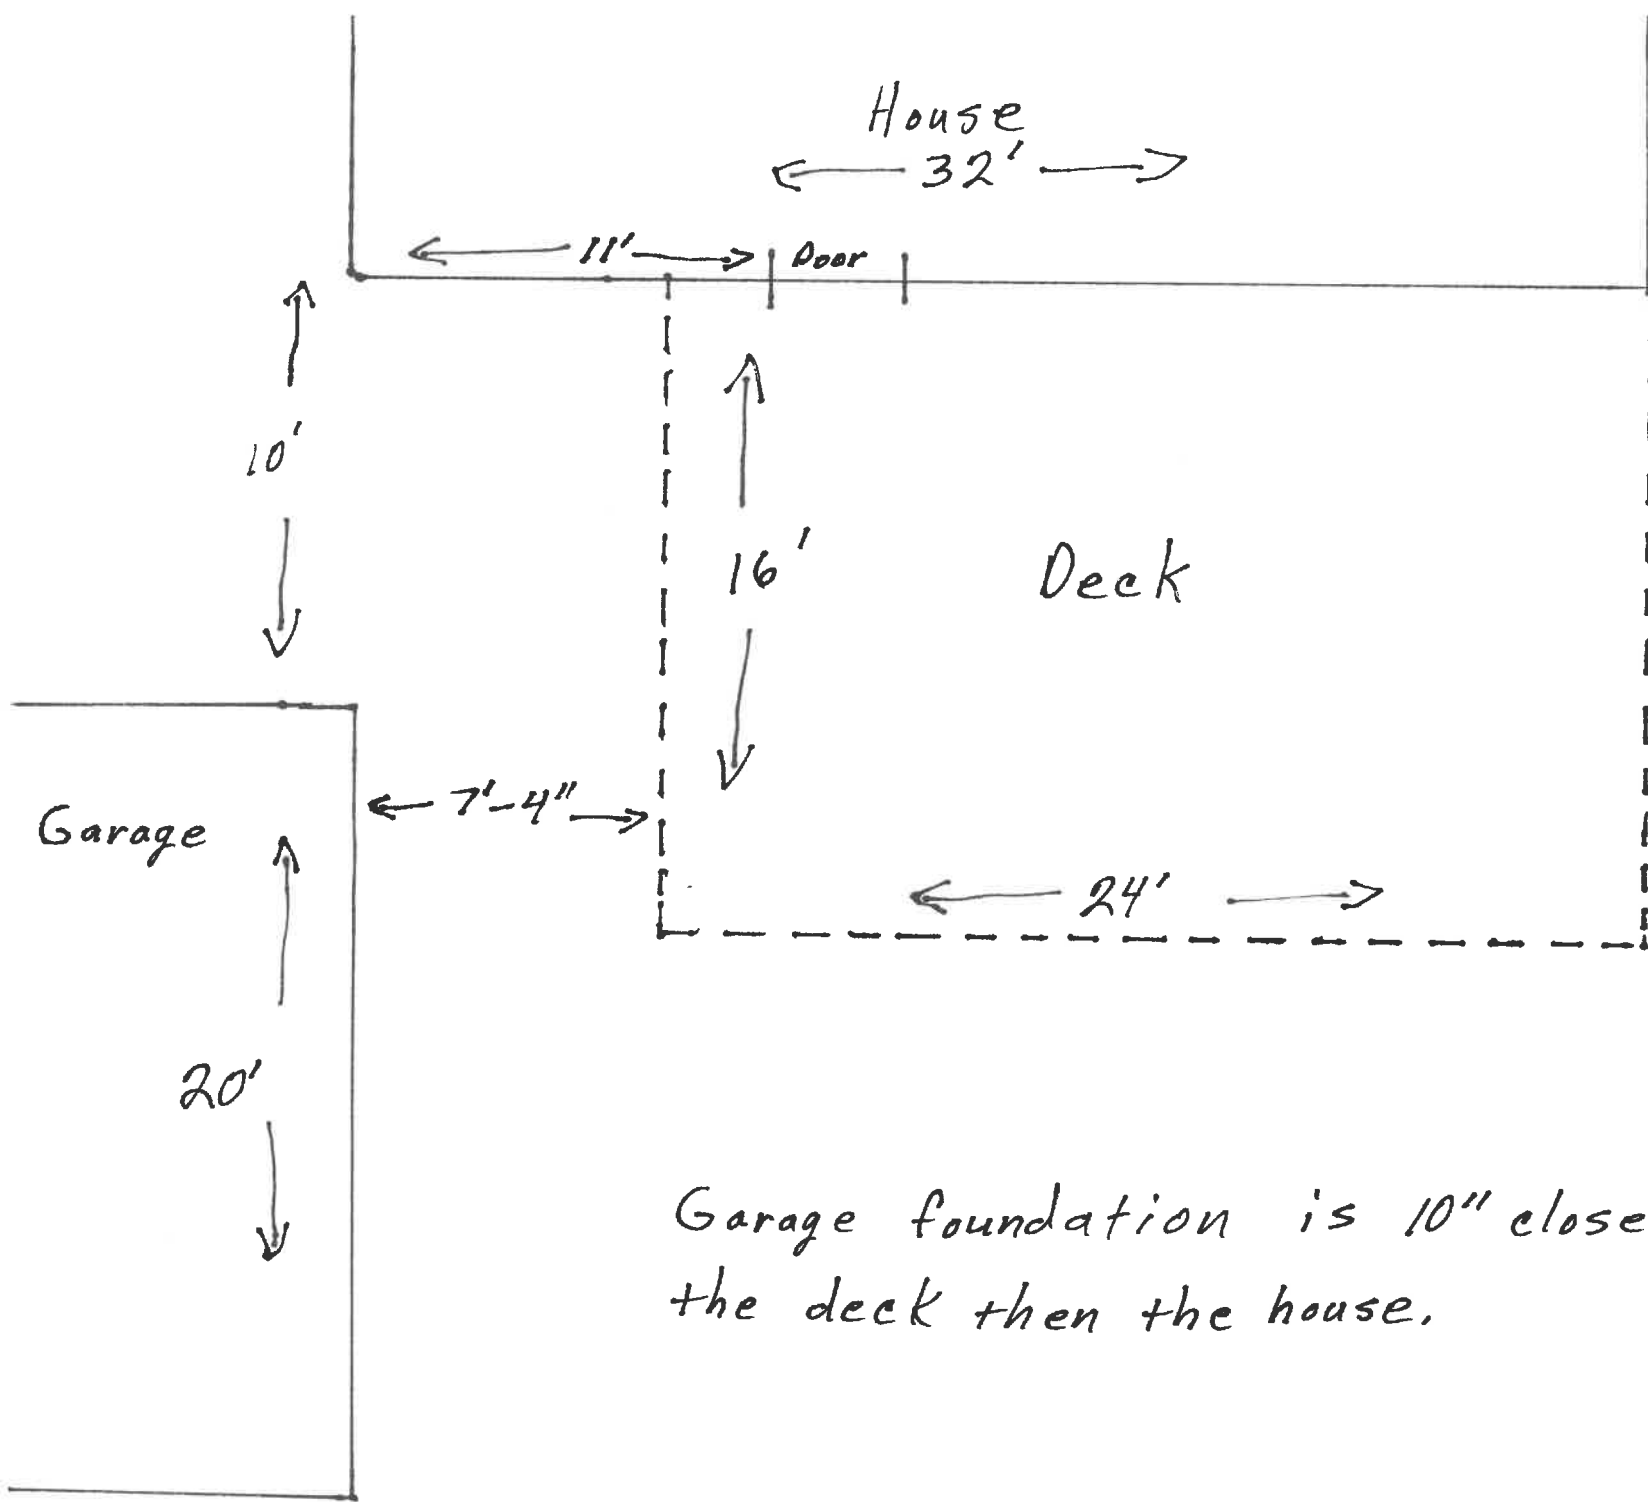 House
32'
11' Door
10'
16'
Deck
7'-4"
Garage
24'
20'
Garage foundation is 10" close
the deck then the house.